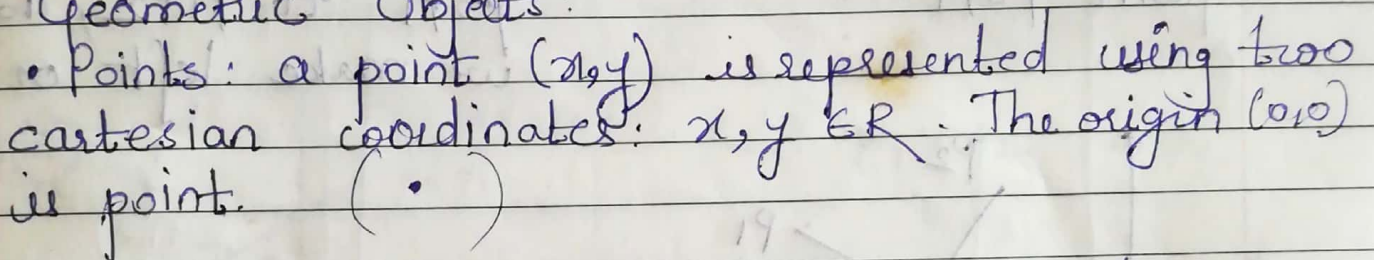 Geometric Objects.
• Points: a point (x,y) is represented using two
cartesian coordinates: x, y ∈ R. The origin (0,0)
is point. ( • )